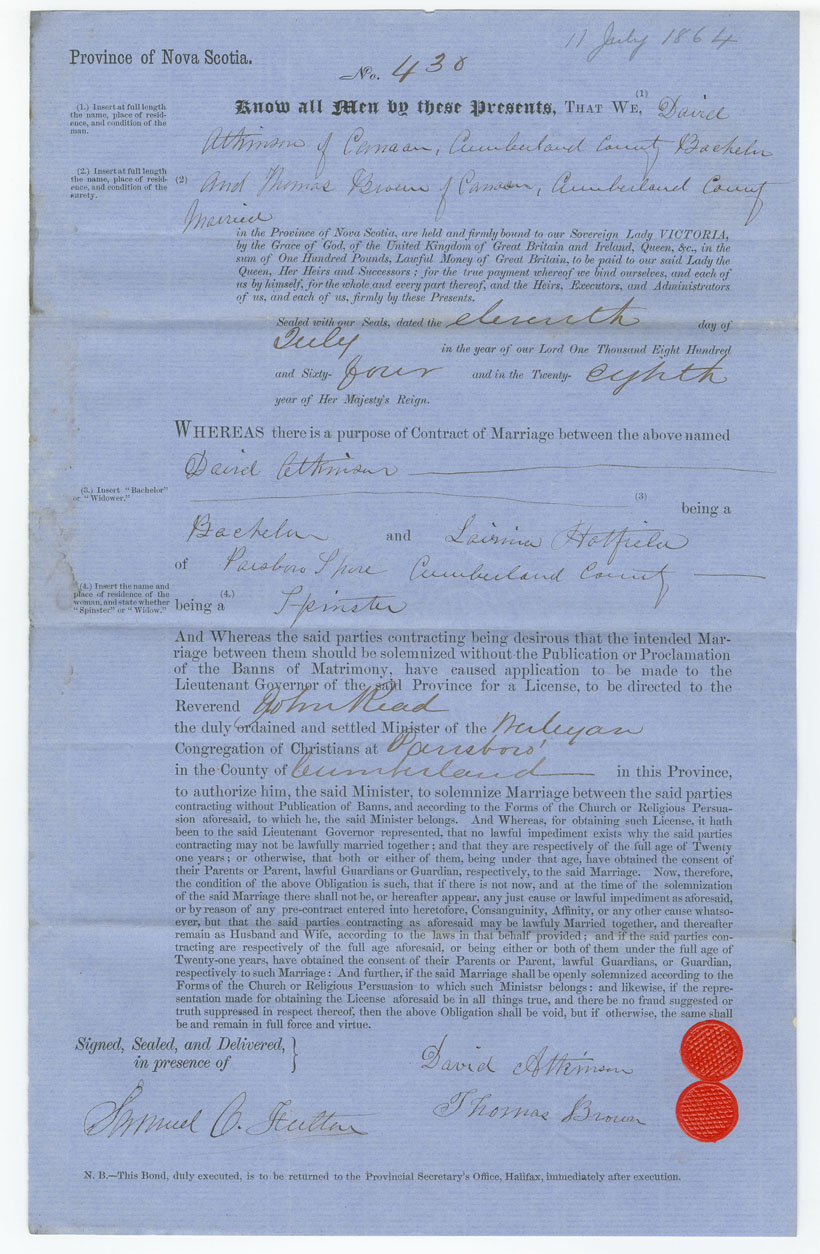 11 July 1864
Province of Nova Scotia.
No. 430
(1.) Insert at full length
the name, place of resid-
ence, and condition of the
man.
(1)
Know all Men by these Presents, THAT WE, David
Atkinson of Canaan, Cumberland County Bachelor
(2.) Insert at full length
the name, place of resid-
ence, and condition of the
surety.
(2) And Thomas Brown of Canaan, Cumberland County
Married
in the Province of Nova Scotia, are held and firmly bound to our Sovereign Lady VICTORIA,
by the Grace of God, of the United Kingdom of Great Britain and Ireland, Queen, &c., in the
sum of One Hundred Pounds, Lawful Money of Great Britain, to be paid to our said Lady the
Queen, Her Heirs and Successors; for the true payment whereof we bind ourselves, and each of
us by himself, for the whole and every part thereof, and the Heirs, Executors, and Administrators
of us, and each of us, firmly by these Presents.
Sealed with our Seals, dated the eleventh day of
July in the year of our Lord One Thousand Eight Hundred
and Sixty- four and in the Twenty- eighth
year of Her Majesty's Reign.
WHEREAS there is a purpose of Contract of Marriage between the above named
David Atkinson
(3.) Insert "Bachelor"
or "Widower."
(3)
being a
Bachelor and Hatfield
of Parsboro Shore Cumberland County
(4.) Insert the name and
place of residence of the
woman, and state whether
"Spinster" or "Widow."
(4.)
being a Spinster
And Whereas the said parties contracting being desirous that the intended Mar-
riage between them should be solemnized without the Publication or Proclamation
of the Banns of Matrimony, have caused application to be made to the
Lieutenant Governor of the said Province for a License, to be directed to the
Reverend John Read
the duly ordained and settled Minister of the Wesleyan
Congregation of Christians at Parrsboro'
in the County of Cumberland in this Province,
to authorize him, the said Minister, to solemnize Marriage between the said parties
contracting without Publication of Banns, and according to the Forms of the Church or Religious Persua-
sion aforesaid, to which he, the said Minister belongs. And Whereas, for obtaining such License, it hath
been to the said Lieutenant Governor represented, that no lawful impediment exists why the said parties
contracting may not be lawfully married together; and that they are respectively of the full age of Twenty
one years; or otherwise, that both or either of them, being under that age, have obtained the consent of
their Parents or Parent, lawful Guardians or Guardian, respectively, to the said Marriage. Now, therefore,
the condition of the above Obligation is such, that if there is not now, and at the time of the solemnization
of the said Marriage there shall not be, or hereafter appear, any just cause or lawful impediment as aforesaid,
or by reason of any pre-contract entered into heretofore, Consanguinity, Affinity, or any other cause whatso-
ever, but that the said parties contracting as aforesaid may be lawfuly Married together, and thereafter
remain as Husband and Wife, according to the laws in that behalf provided; and if the said parties con-
tracting are respectively of the full age aforesaid, or being either or both of them under the full age of
Twenty-one years, have obtained the consent of their Parents or Parent, lawful Guardians, or Guardian,
respectively to such Marriage: And further, if the said Marriage shall be openly solemnized according to the
Forms of the Church or Religious Persuasion to which such Ministsr belongs: and likewise, if the repre-
sentation made for obtaining the License aforesaid be in all things true, and there be no fraud suggested or
truth suppressed in respect thereof, then the above Obligation shall be void, but if otherwise, the same shall
be and remain in full force and virtue.
Signed, Sealed, and Delivered,
in presence of
David Atkinson
Thomas Brown
Samuel C. Fulton
N. B.—This Bond, duly executed, is to be returned to the Provincial Secretary's Office, Halifax, immediately after execution.